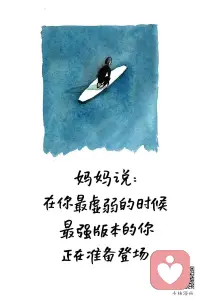 妈妈说：
在你最虚弱的时候
最强版本的你
正在准备登场